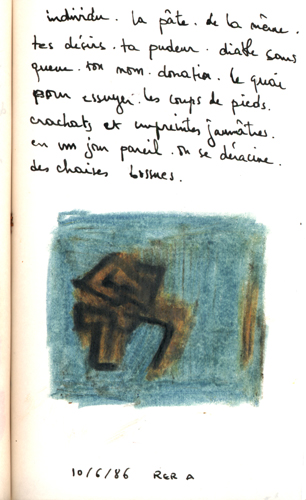 individu. la pâte. de la même.
tes désirs. ta pudeur. diable sans
queue. ton nom. donation. le quai
pour essuyer. les coups de pieds.
crachats et empreintes jaunâtres.
en un jour pareil. on se déracine.
des chaises bossues.
10/6/86 RER A